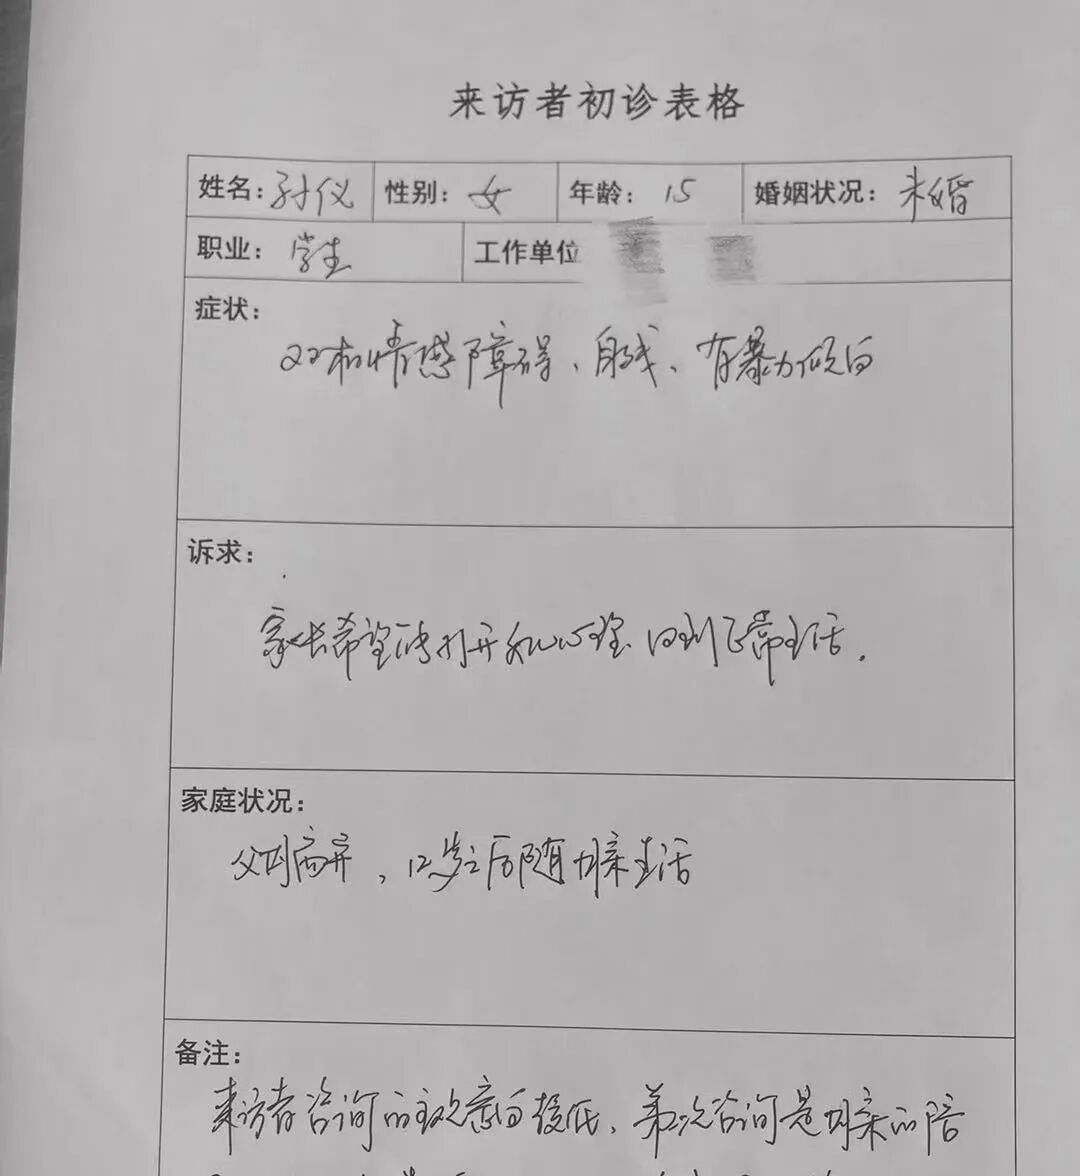 来访者初诊表格
姓名：孙仪 性别：女 年龄：15 婚姻状况：未婚
职业：学生 工作单位
症状：
双相情感障碍、自残、有暴力倾向
诉求：
家长希望能打开 心理 回到正常生活．
家庭状况：
父母离异，12岁之后随母亲生活
备注：
来访者咨询的主观意向较低、第一次咨询是母亲的陪